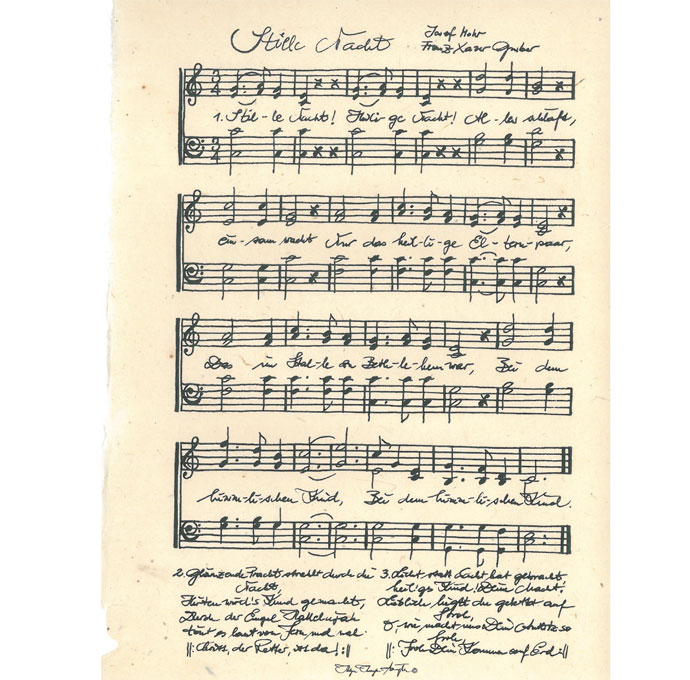 Stille Nacht
Josef Mohr
Franz Xaver Gruber
1. Stil-le Nacht! Heili-ge Nacht! Al-les schläft,
ein-sam wacht Nur das heil-li-ge El-tern-paar,
Das im Stal-le zu Beth-le-hem war, Bei dem
himm-li-schen Kind, Bei dem himm-li-schen Kind.
2. Glänzende Pracht strahlt durch die
Nacht,
Hirten wird's Kund gemacht,
Durch der Engel Hallelujah
tönt es laut von fern und nah:
||: Christ, der Retter, ist da! :||
3. Licht statt Nacht hat gebracht
heil'ge Kind! Dein Macht!
Lieblich liegst du gebettet auf
Stroh,
O, wie macht uns Dein Antlitz so
froh,
||: Froh Dein Kommen auf Erd :||